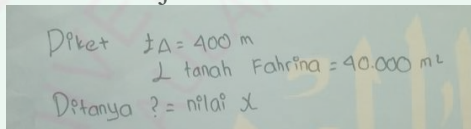 Diket tΔ = 400 m
L tanah Fahrina = 40.000 m²
Ditanya ? = nilai x